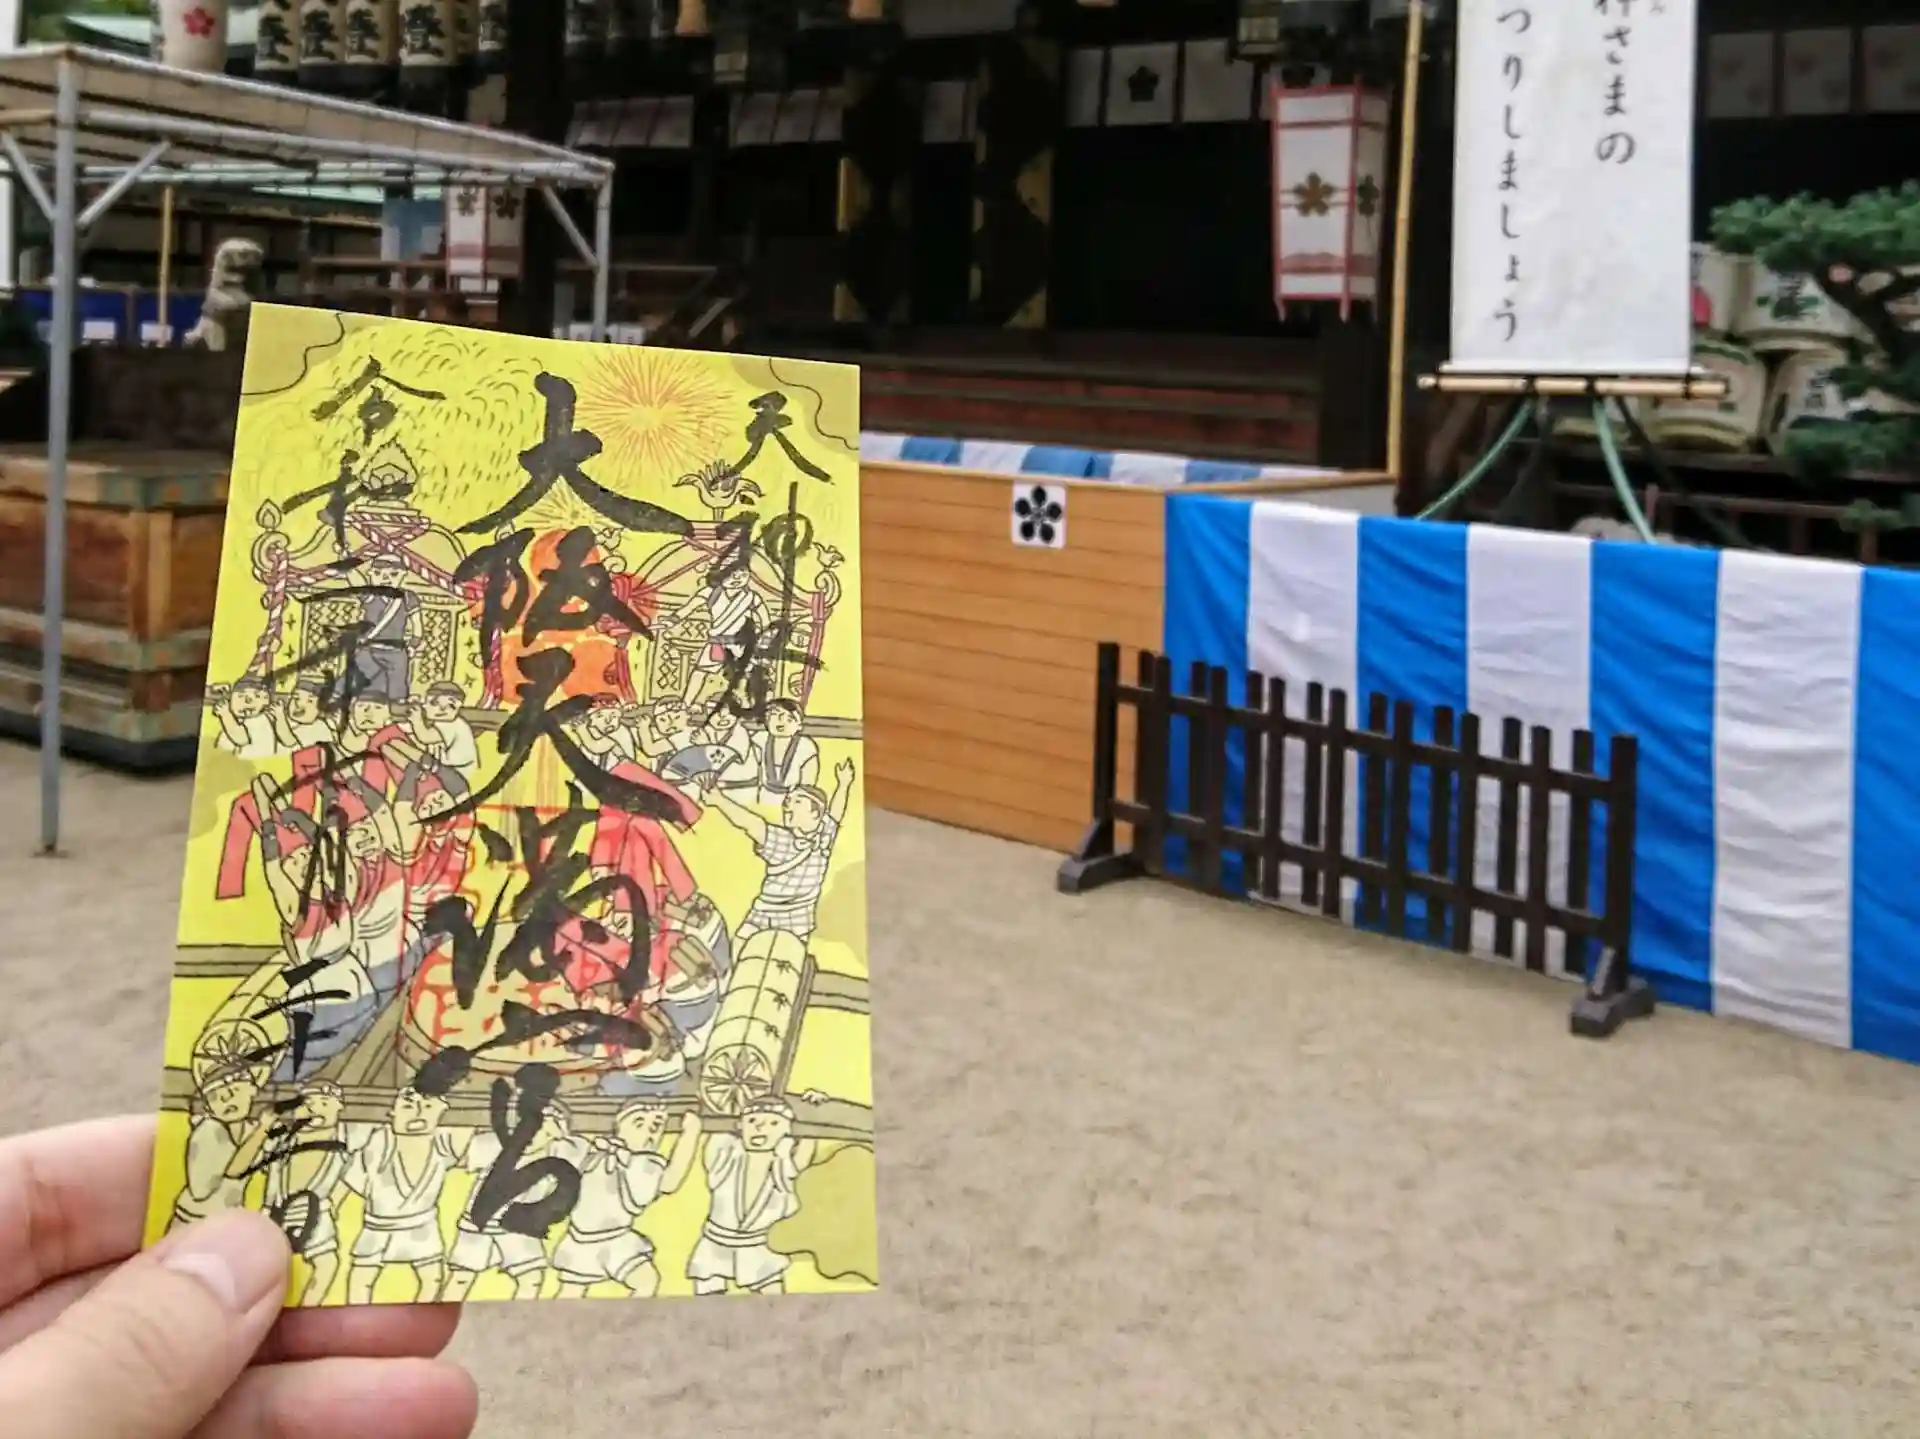 天神祭
大阪天満宮
令和二年七月二十三日
さまの
つりしましょう